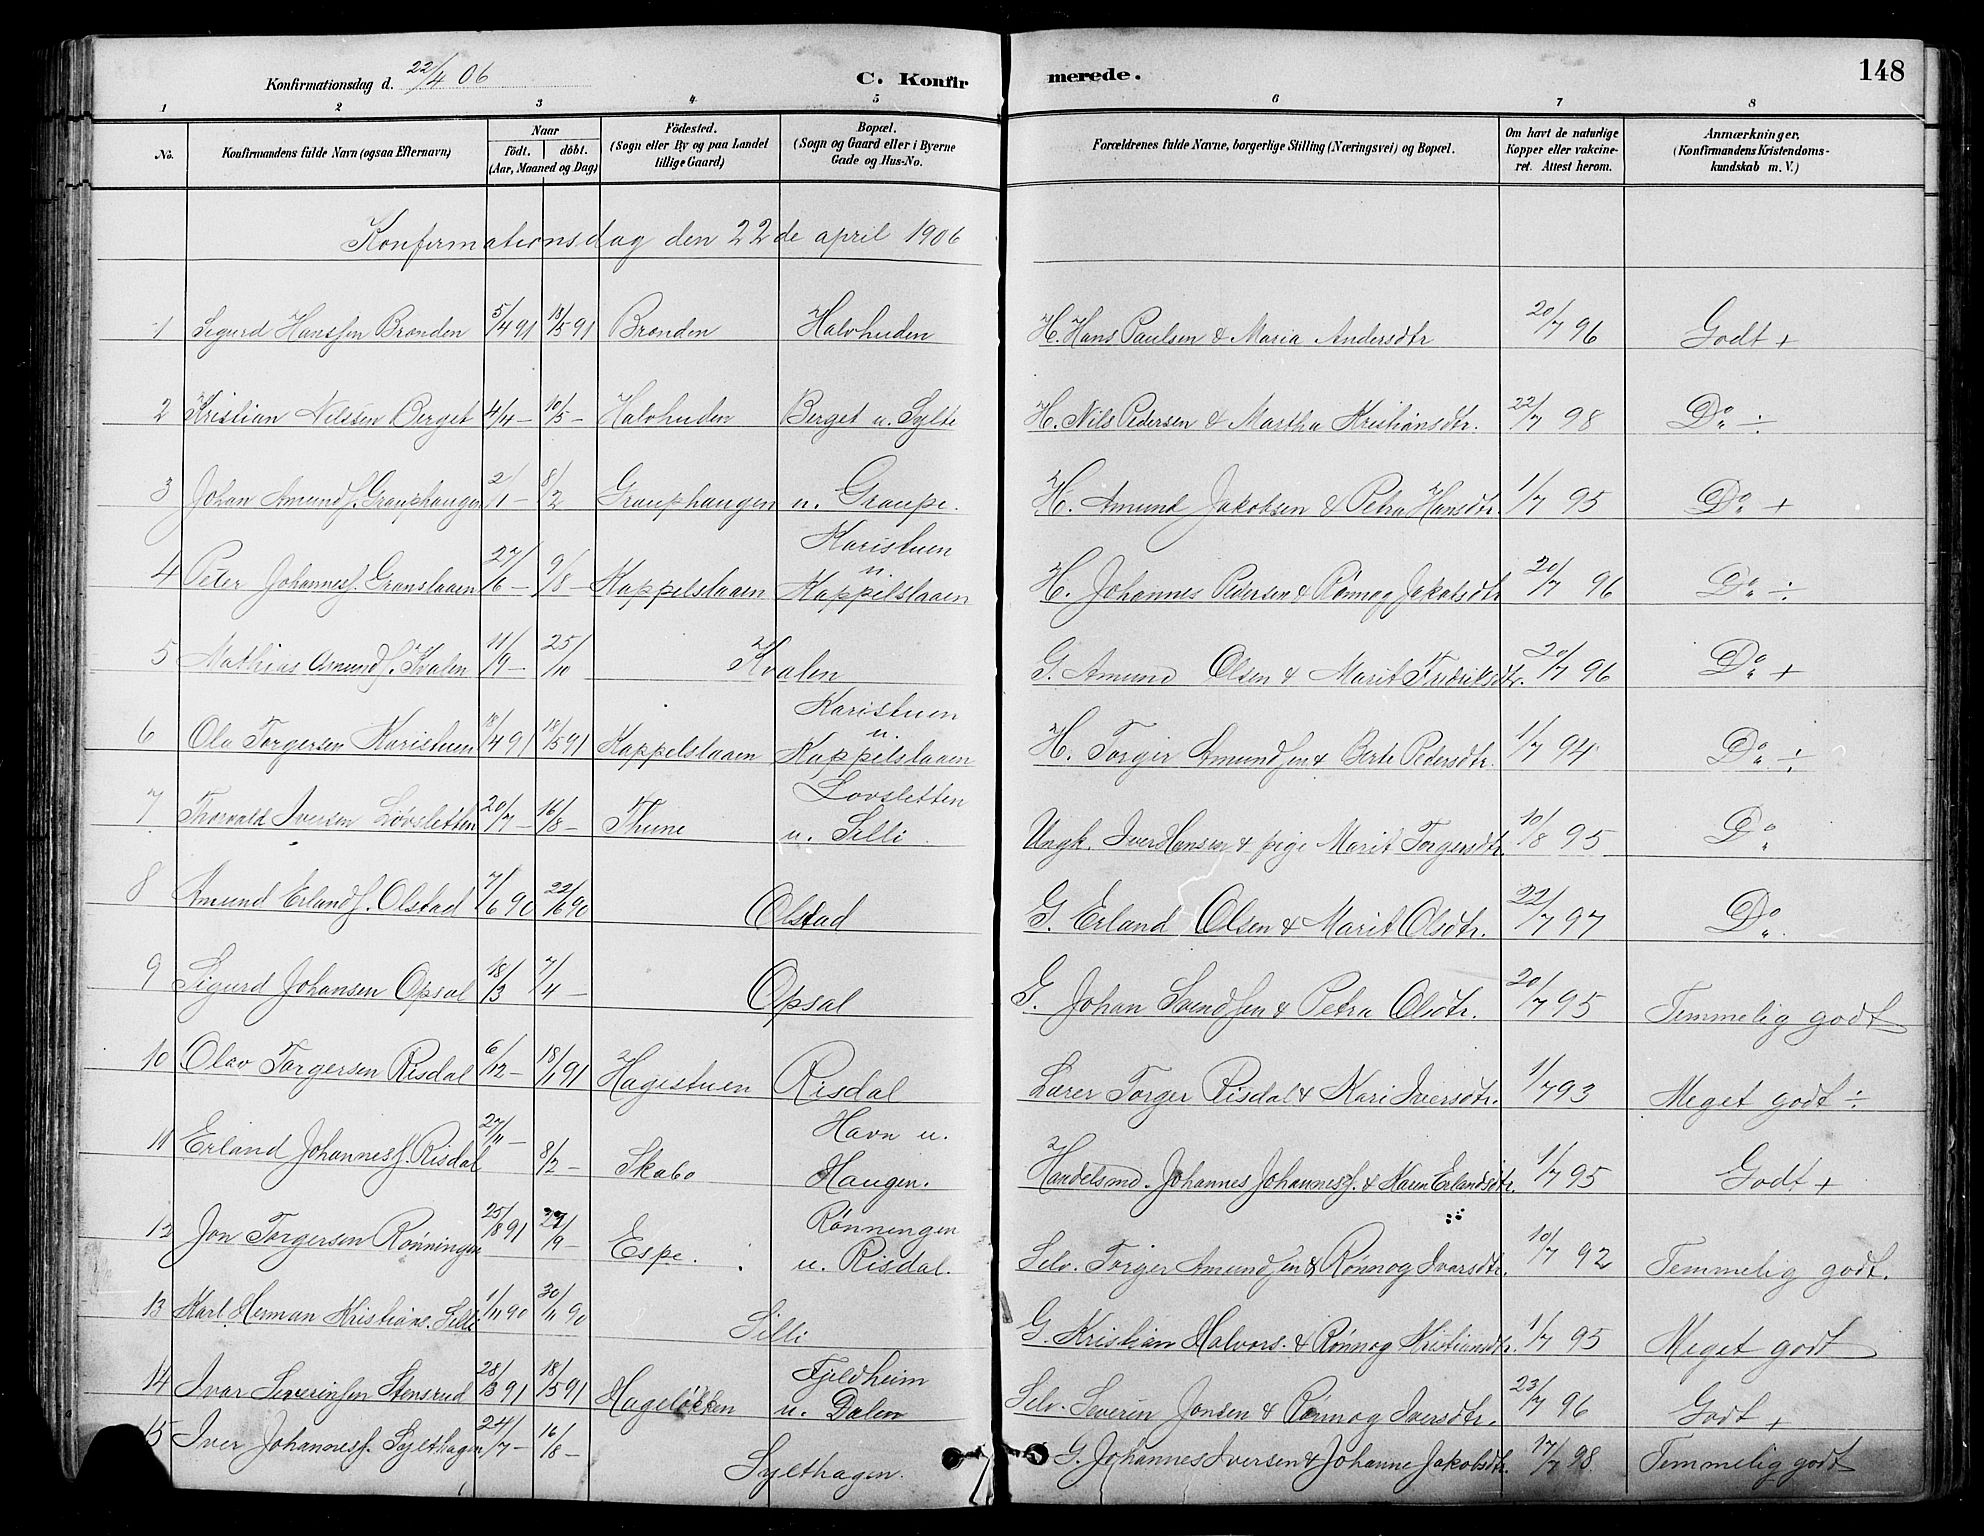 Konfirmationsdag d. 22/4 06 C. Konfirmerede. 148
1 2 3 4 5 6 7 8
No. Konfirmandens fulde Navn (ogsaa Efternavn) Naar födt. döbt. (Aar, Maaned og Dag) Födested. (Sogn eller By og paa Landet tillige Gaard) Bopæl. (Sogn og Gaard eller i Byerne Gade og Hus-No. Forældrenes fulde Navne, borgerlige Stilling (Næringsvei) og Bopæl. Om havt de naturlige Kopper eller vakcineret. Attest herom. Anmærkninger. (Konfirmandens Kristendomskundskab m. V.)
Konfirmationsdag den 22de april 1906
1 Sigurd Hanssen Brønden 5/4 91 18/5 91 Brønden Halvhuden H. Hans Paulsen & Maria Andersdtr 20/7 96 Godt +
2 Kristian Nilssen Berget 4/4 – 10/5 – Halvhuden Berget u. Sylte H. Nils Pedersen & Martha Kristiansdtr. 22/7 98 Do ÷
3 Johan Amunds. Grauphaugen 2/1 – 8/2 Grauphaugen u. Graupe. H. Amund Jakobsen & Petra Hansdtr. 1/7 95 Do +
4 Peter Johanness. Granslaaen 27/6 – 9/8 – Kappelslaaen Karistuen u. Kappelslaaen H. Johannes Pedersen & Rønnog Jakobsdtr 20/7 96 Do ÷
5 Mathias Amunds. Kvalen 11/9 – 25/10 Kvalen G. Amund Olsen & Marit Fredriksdtr. 20/7 96 Do +
6 Ola Torgersen Karistuen 18/4 91 18/5 91 Kappelslaaen Karistuen u. Kappelslaaen H. Torgir Amundsen & Berte Pedersdtr. 1/7 94 Do ÷
7 Thorvald Iversen Løvsletten 20/7 – 16/8 – Thune Lovsletten u. Silli. Ungk. Iver Hansen & pige Marit Torgersdtr. 10/8 95 Do
8 Amund Erlands. Olstad 7/6 90 22/6 90 Olstad G. Erland Olsen & Marit Olsdtr. 22/7 97 Do
9 Sigurd Johansen Opsal 18/3 7/4 – Opsal G. Johan Svendsen & Petra Olsdtr. 20/7 95 Temmelig godt
10 Olav Torgersen Risdal 6/12 – 18/1 91 Hagestuen Risdal Lærer Torger Risdal & Kari Iversdtr. 1/7 93 Meget godt ÷
11 Erland Johanness. Risdal 27/11 – 8/2 – Skabo Havn u. Haugen. Handelsmd. Johannes Johanness. & Karen Erlandsdtr. 1/7 95 Godt +
12 Jon Torgersen Rønningen 25/8 91 27/9 – Espe. Rønningen u. Risdal. Selv. Torger Amundsen & Rønnog Ivarsdtr. 10/7 92 Temmelig godt.
13 Karl Herman Kristians. Silli 1/11 90 30/11 90 Silli G. Kristian Halvors. & Rønnog Kristiansdtr. 1/7 95 Meget godt
14 Ivar Severinsen Stensrud 28/3 91 18/5 91 Hageløkken Fjeldheim u. Dalen Selv. Severin Jonsen & Rønnog Iversdtr. 23/7 96 Godt +
15 Iver Johanness. Sylthagen 24/7 – 16/8 – Sylthagen. G. Johannes Iversen & Johanne Jakobsdtr. 17/7 98. Temmelig godt